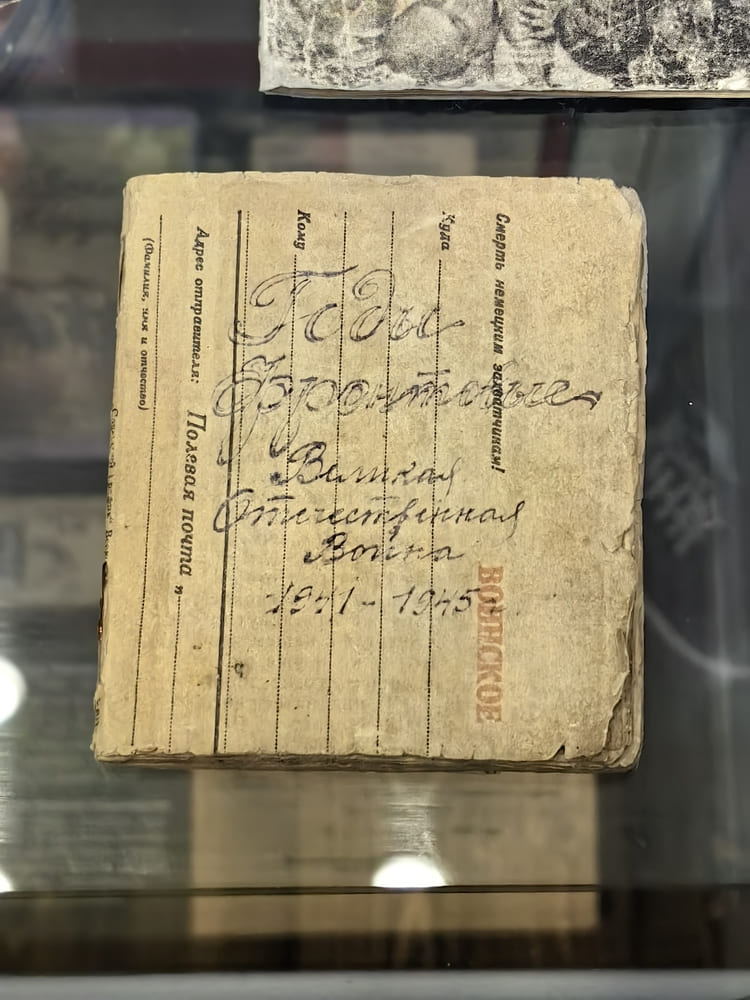 Годы
Фронтовые
Великая
Отечественная
Война
1941-1945
Смерть немецким захватчикам!
ВОИНСКОЕ
Куда
Кому
Адрес отправителя: Полевая почта „
(Фамилия, имя и отчество)